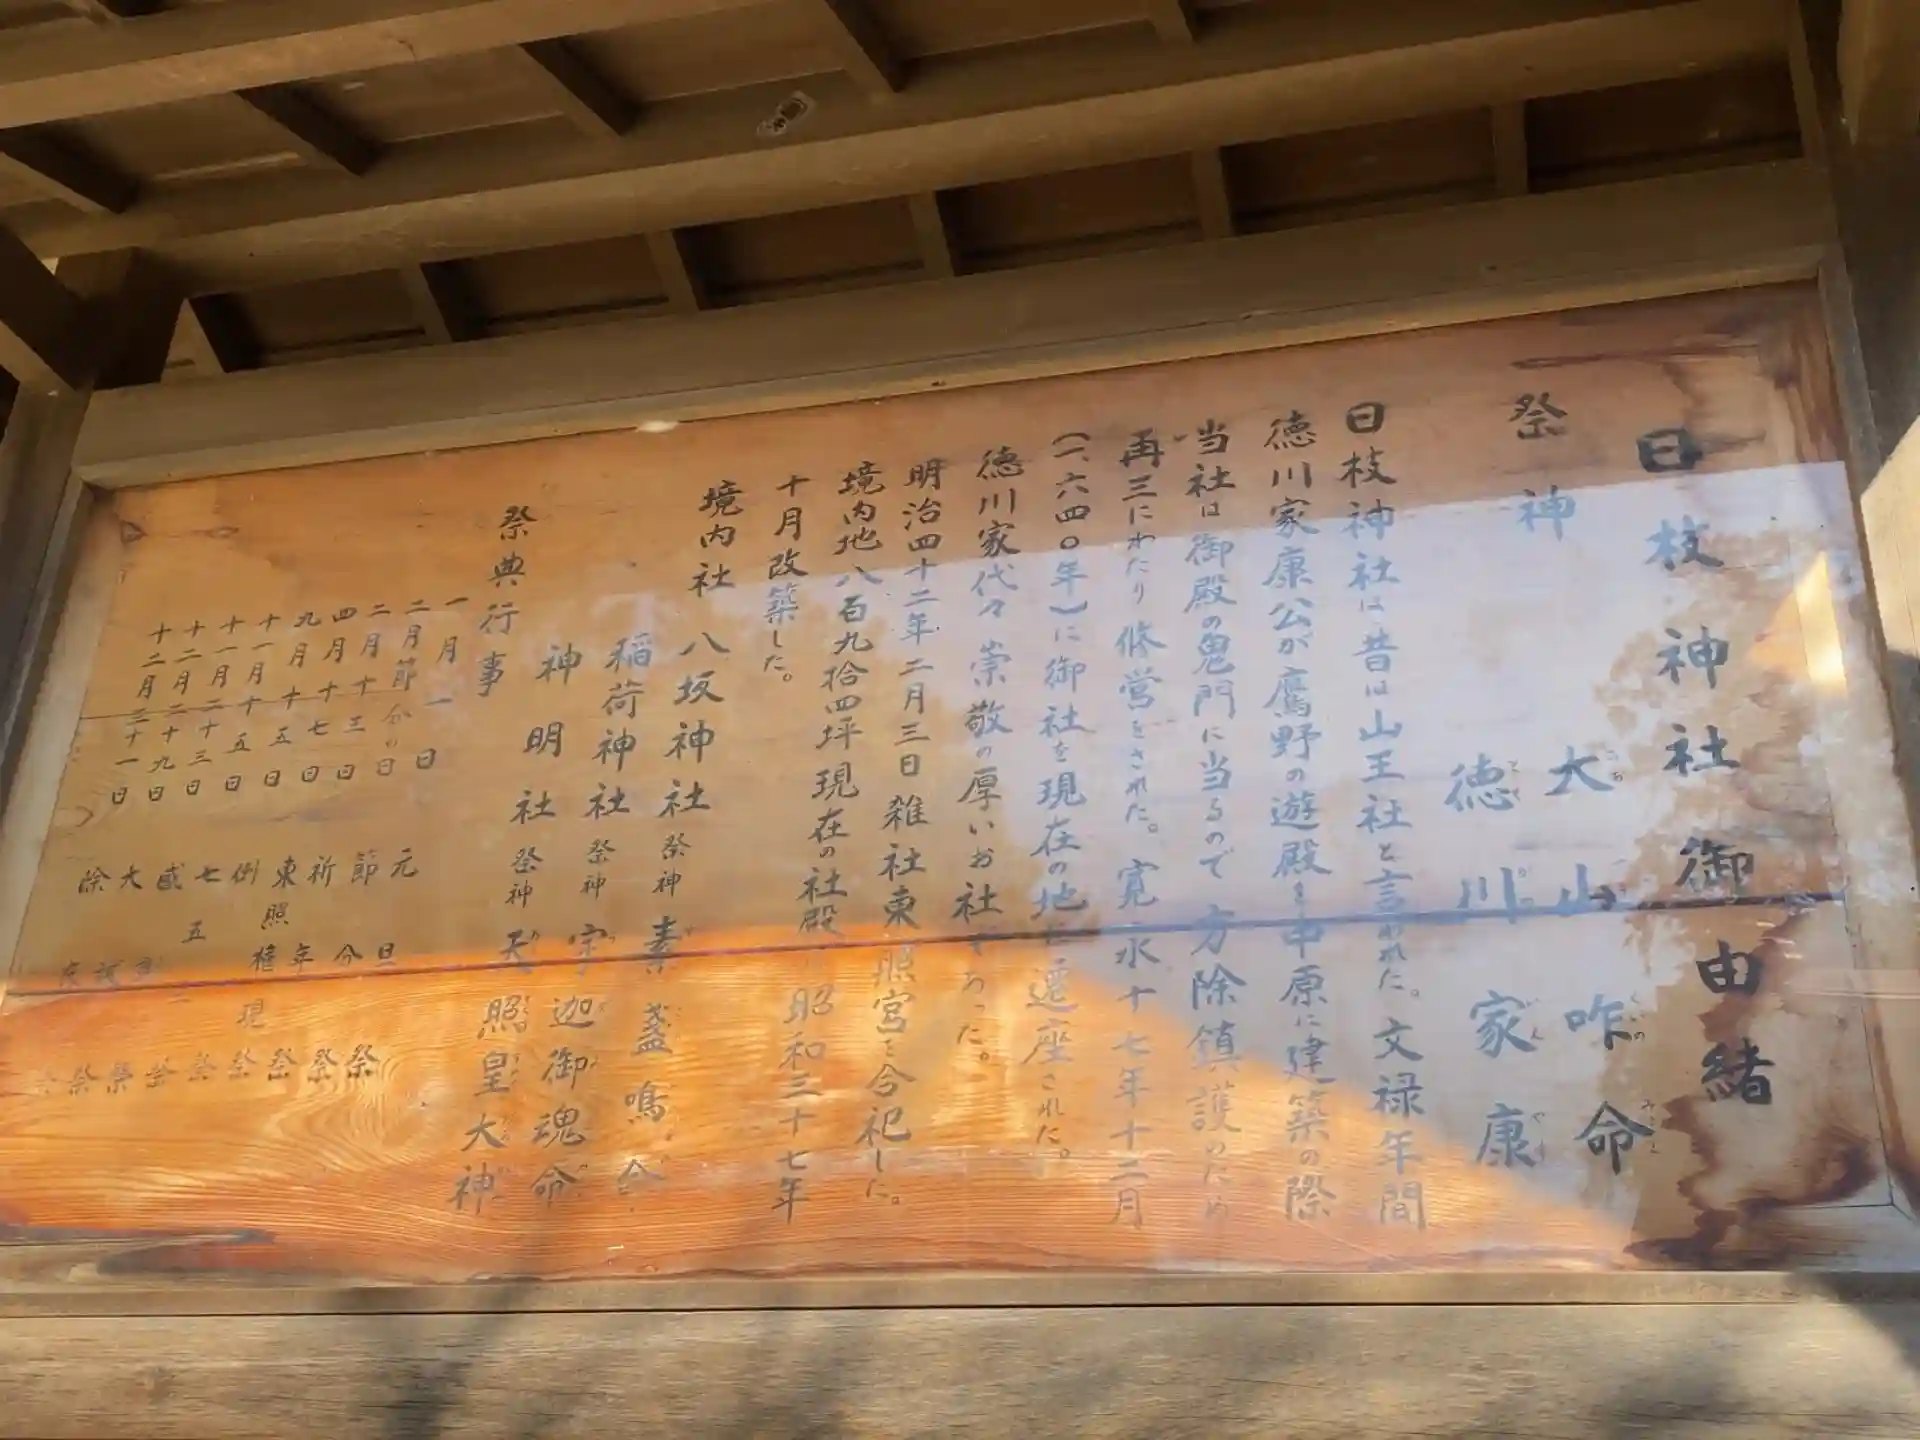 日枝神社御由緒
祭神 大山咋命
徳川家康
日枝神社は、昔は山王社と言われた。文禄年間
徳川家康公が鷹野の遊殿を中原に建築の際
当社は御殿の鬼門に当るので方除鎮護のため
再三にわたり修営をされた。寛永十七年十二月
(一、六四〇年)に御社を現在の地に遷座された。
徳川家代々崇敬の厚いお社であった。
明治四十二年二月三日雑社東照宮を合祀した。
境内地八百九拾四坪現在の社殿は昭和三十七年
十月改築した。
境内社 八坂神社 祭神 素盞鳴命
稲荷神社 祭神 宇迦御魂命
神明社 祭神 天照皇大神
祭典行事
一月一日 元旦祭
二月節分の日 節分祭
二月十三日 祈年祭
四月十七日 東照権現祭
九月十五日 例祭
十一月十五日 七五三祭
十一月二十三日 感謝祭
十二月二十九日 大祓祭
十二月三十一日 除夜祭